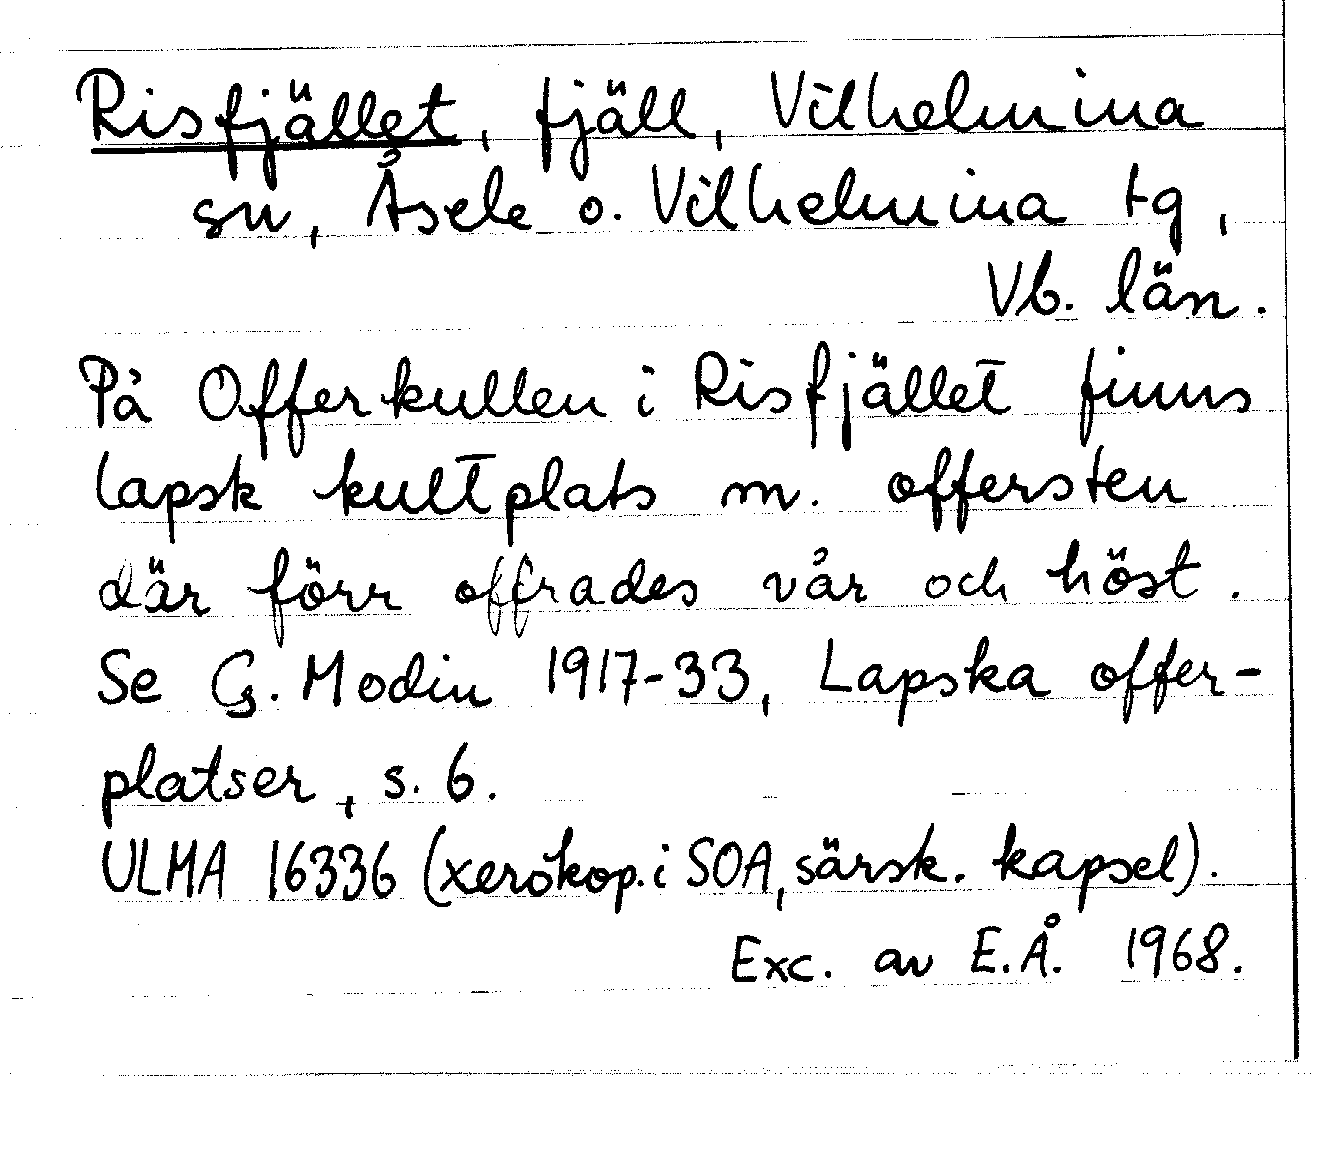 Risfjället, fjäll, Vilhelmina
sn, Åsele o. Vilhelmina tg,
Vb. län.
På Offerkullen i Risfjället finns
lapsk kultplats m. offersten
där förr offrades vår och höst.
Se G. Modin 1917-33, Lapska offer-
platser, s. 6.
ULMA 16336 (xerokop. i SOA, särsk. kapsel).
Exc. av E.Å. 1968.